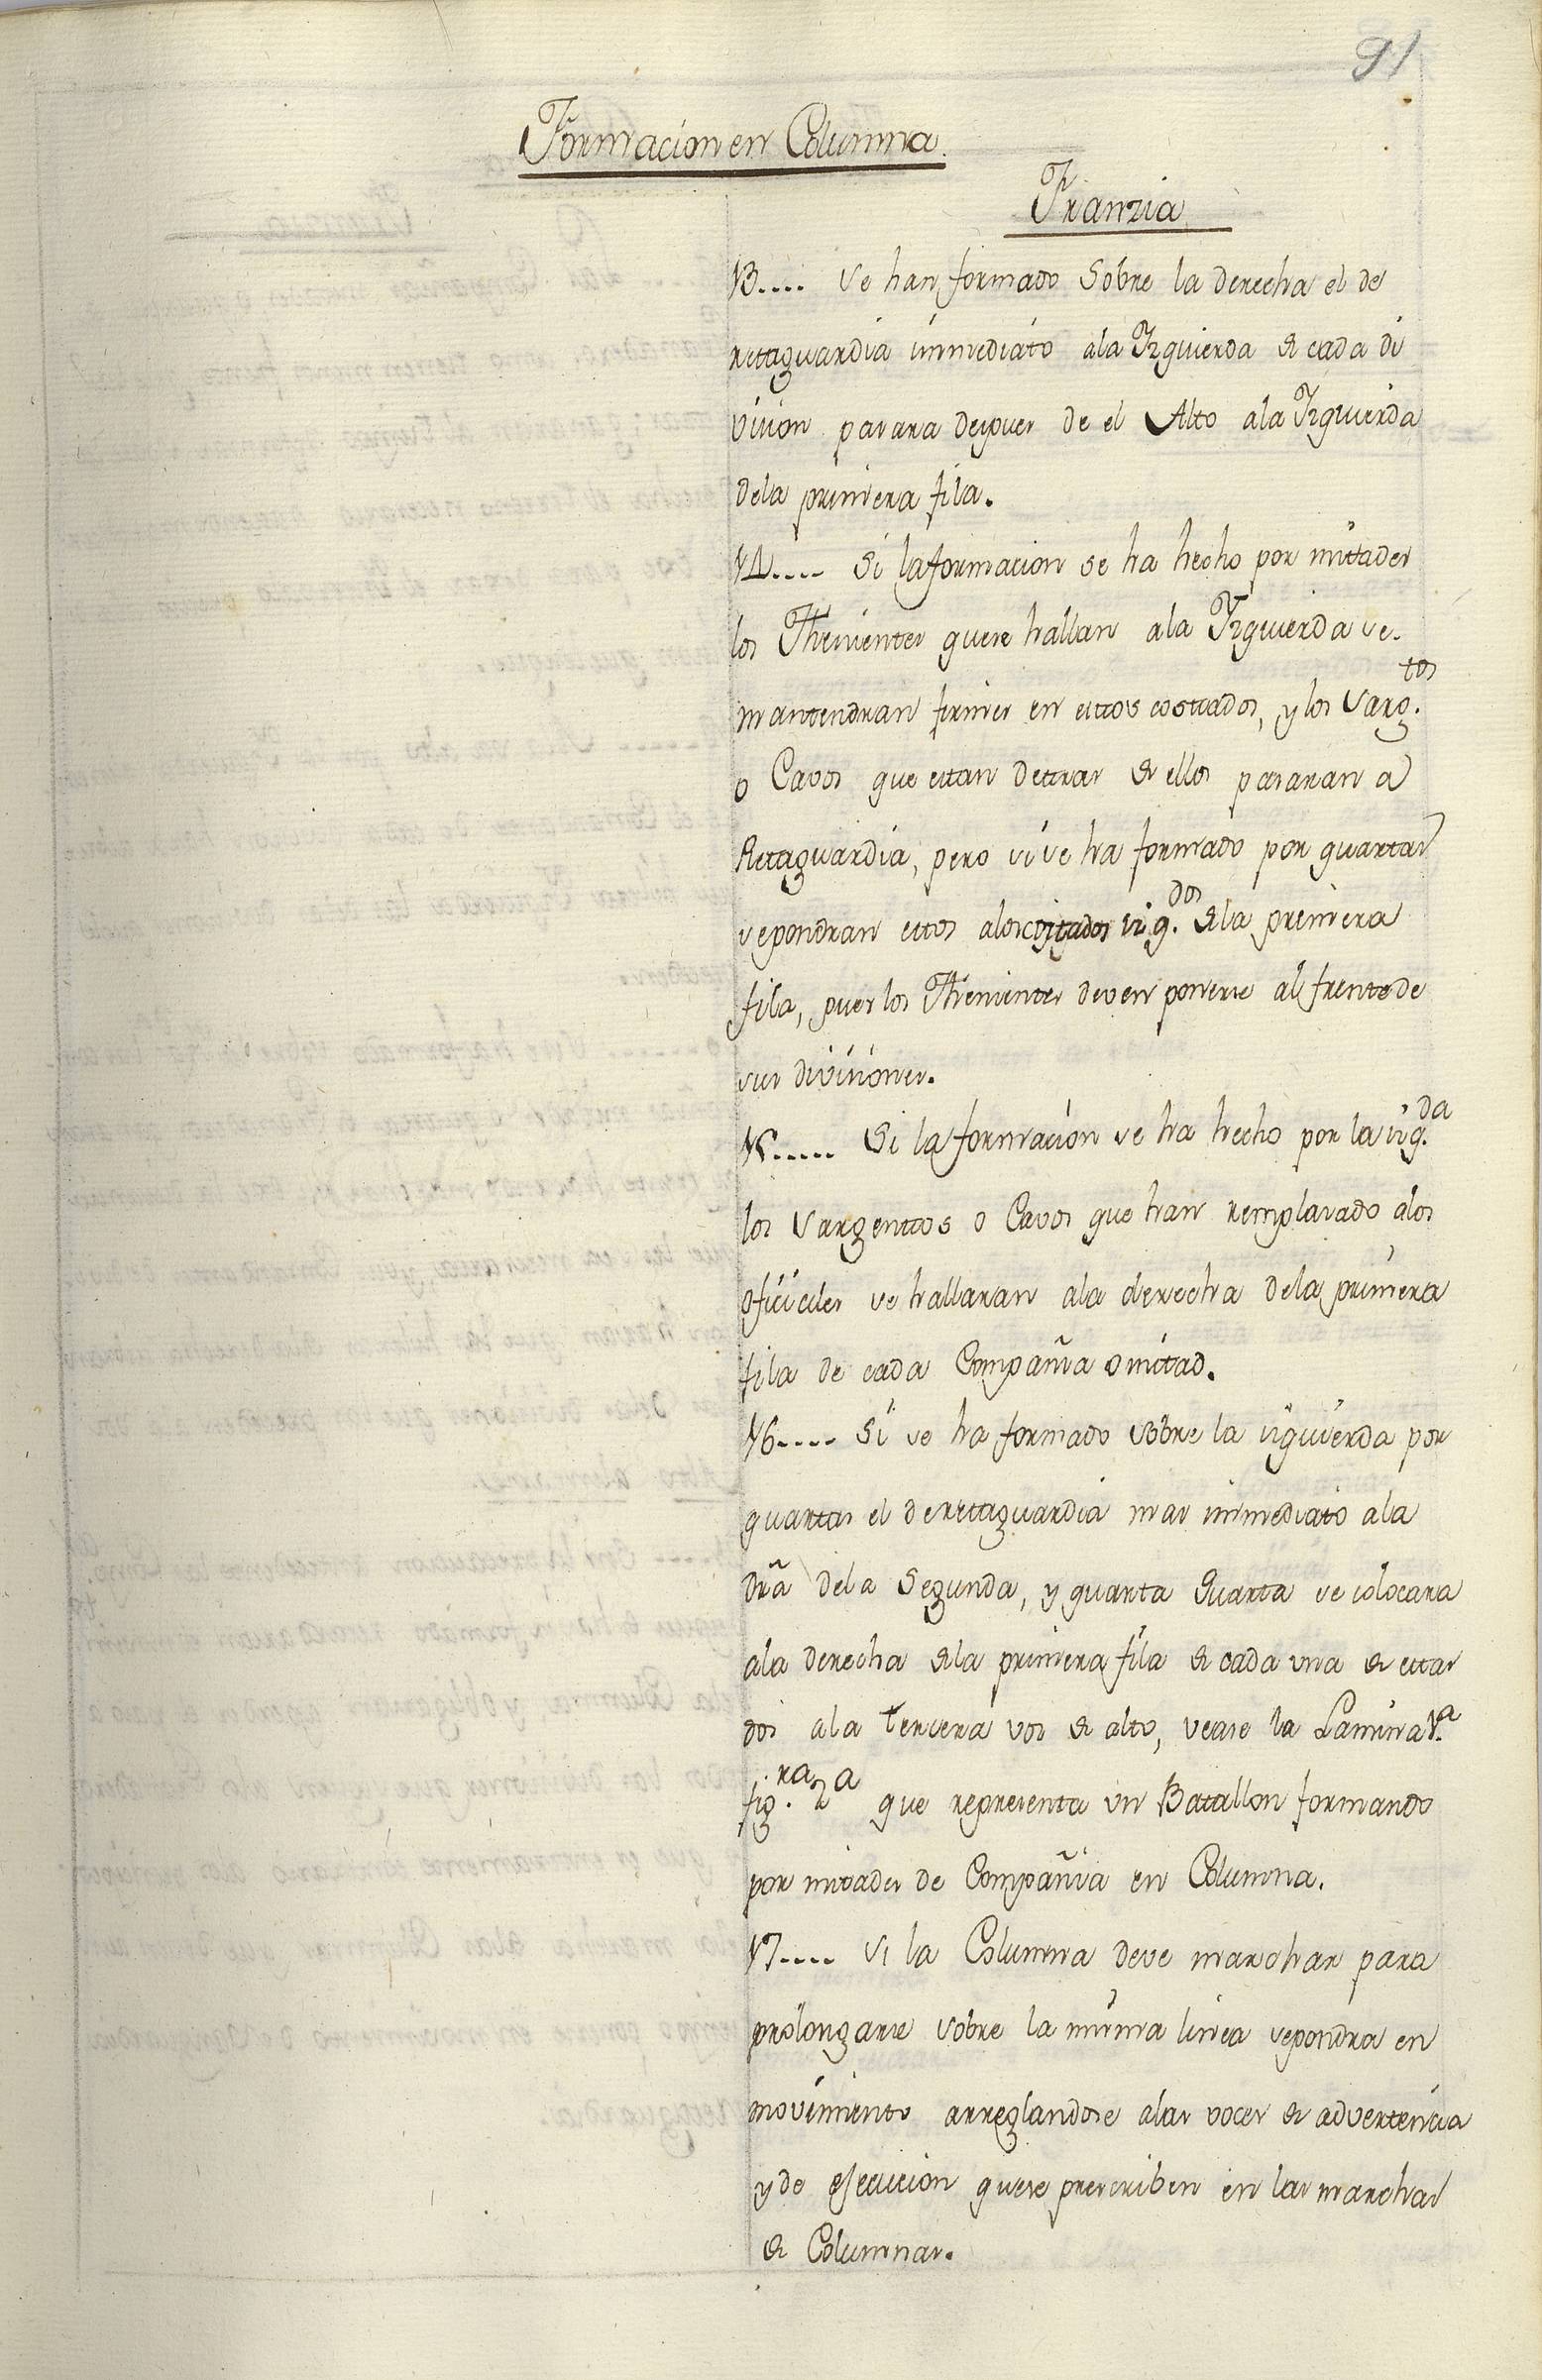 91
Formacion en Columna.
Franzia
13.... se han formado sobre la derecha el de
retaguardia inmediato ala Izquierda de cada di
vision pasara despues de el Alto ala Izquierda
dela primera fila.
14.... Si la formacion se ha hecho por mitades
los Thenientes quese hallan ala Izquierda se.
mantendran firmes en estos costados, y los Sarg.tos
o Cavos que estan detras de ellos pasaran a
Retaguardia, pero si se ha formado por quartas
sepondran estos alos citados izq.dos dela primera
fila, pues los Thenientes deven ponerse al frente de
sus divisiones.
15..... Si la formacion se ha hecho por la izq.da
los Sargentos o Cavos que han remplasado alos
oficiales se hallaran ala derecha dela primera
fila de cada Compañia o mitad.
16.... Si se ha formado sobre la izquierda por
quartas el de retaguardia mas inmediato ala
dr̃a dela Segunda, y quarta Quarta se colocara
ala derecha dela primera fila de cada una de estas
dos ala tercera vos de alto, vease la Lamina 1.a
fig.ra 2a que representa un Batallon formando
por mitades de Compañia en Columna.
17.... Si la Columna deve marchar para
prolongarse sobre la misma linea sepondra en
movimiento arreglandose alas voces de advertencia
y de ejecucion quese prescriben en las marchas
de Columnas.